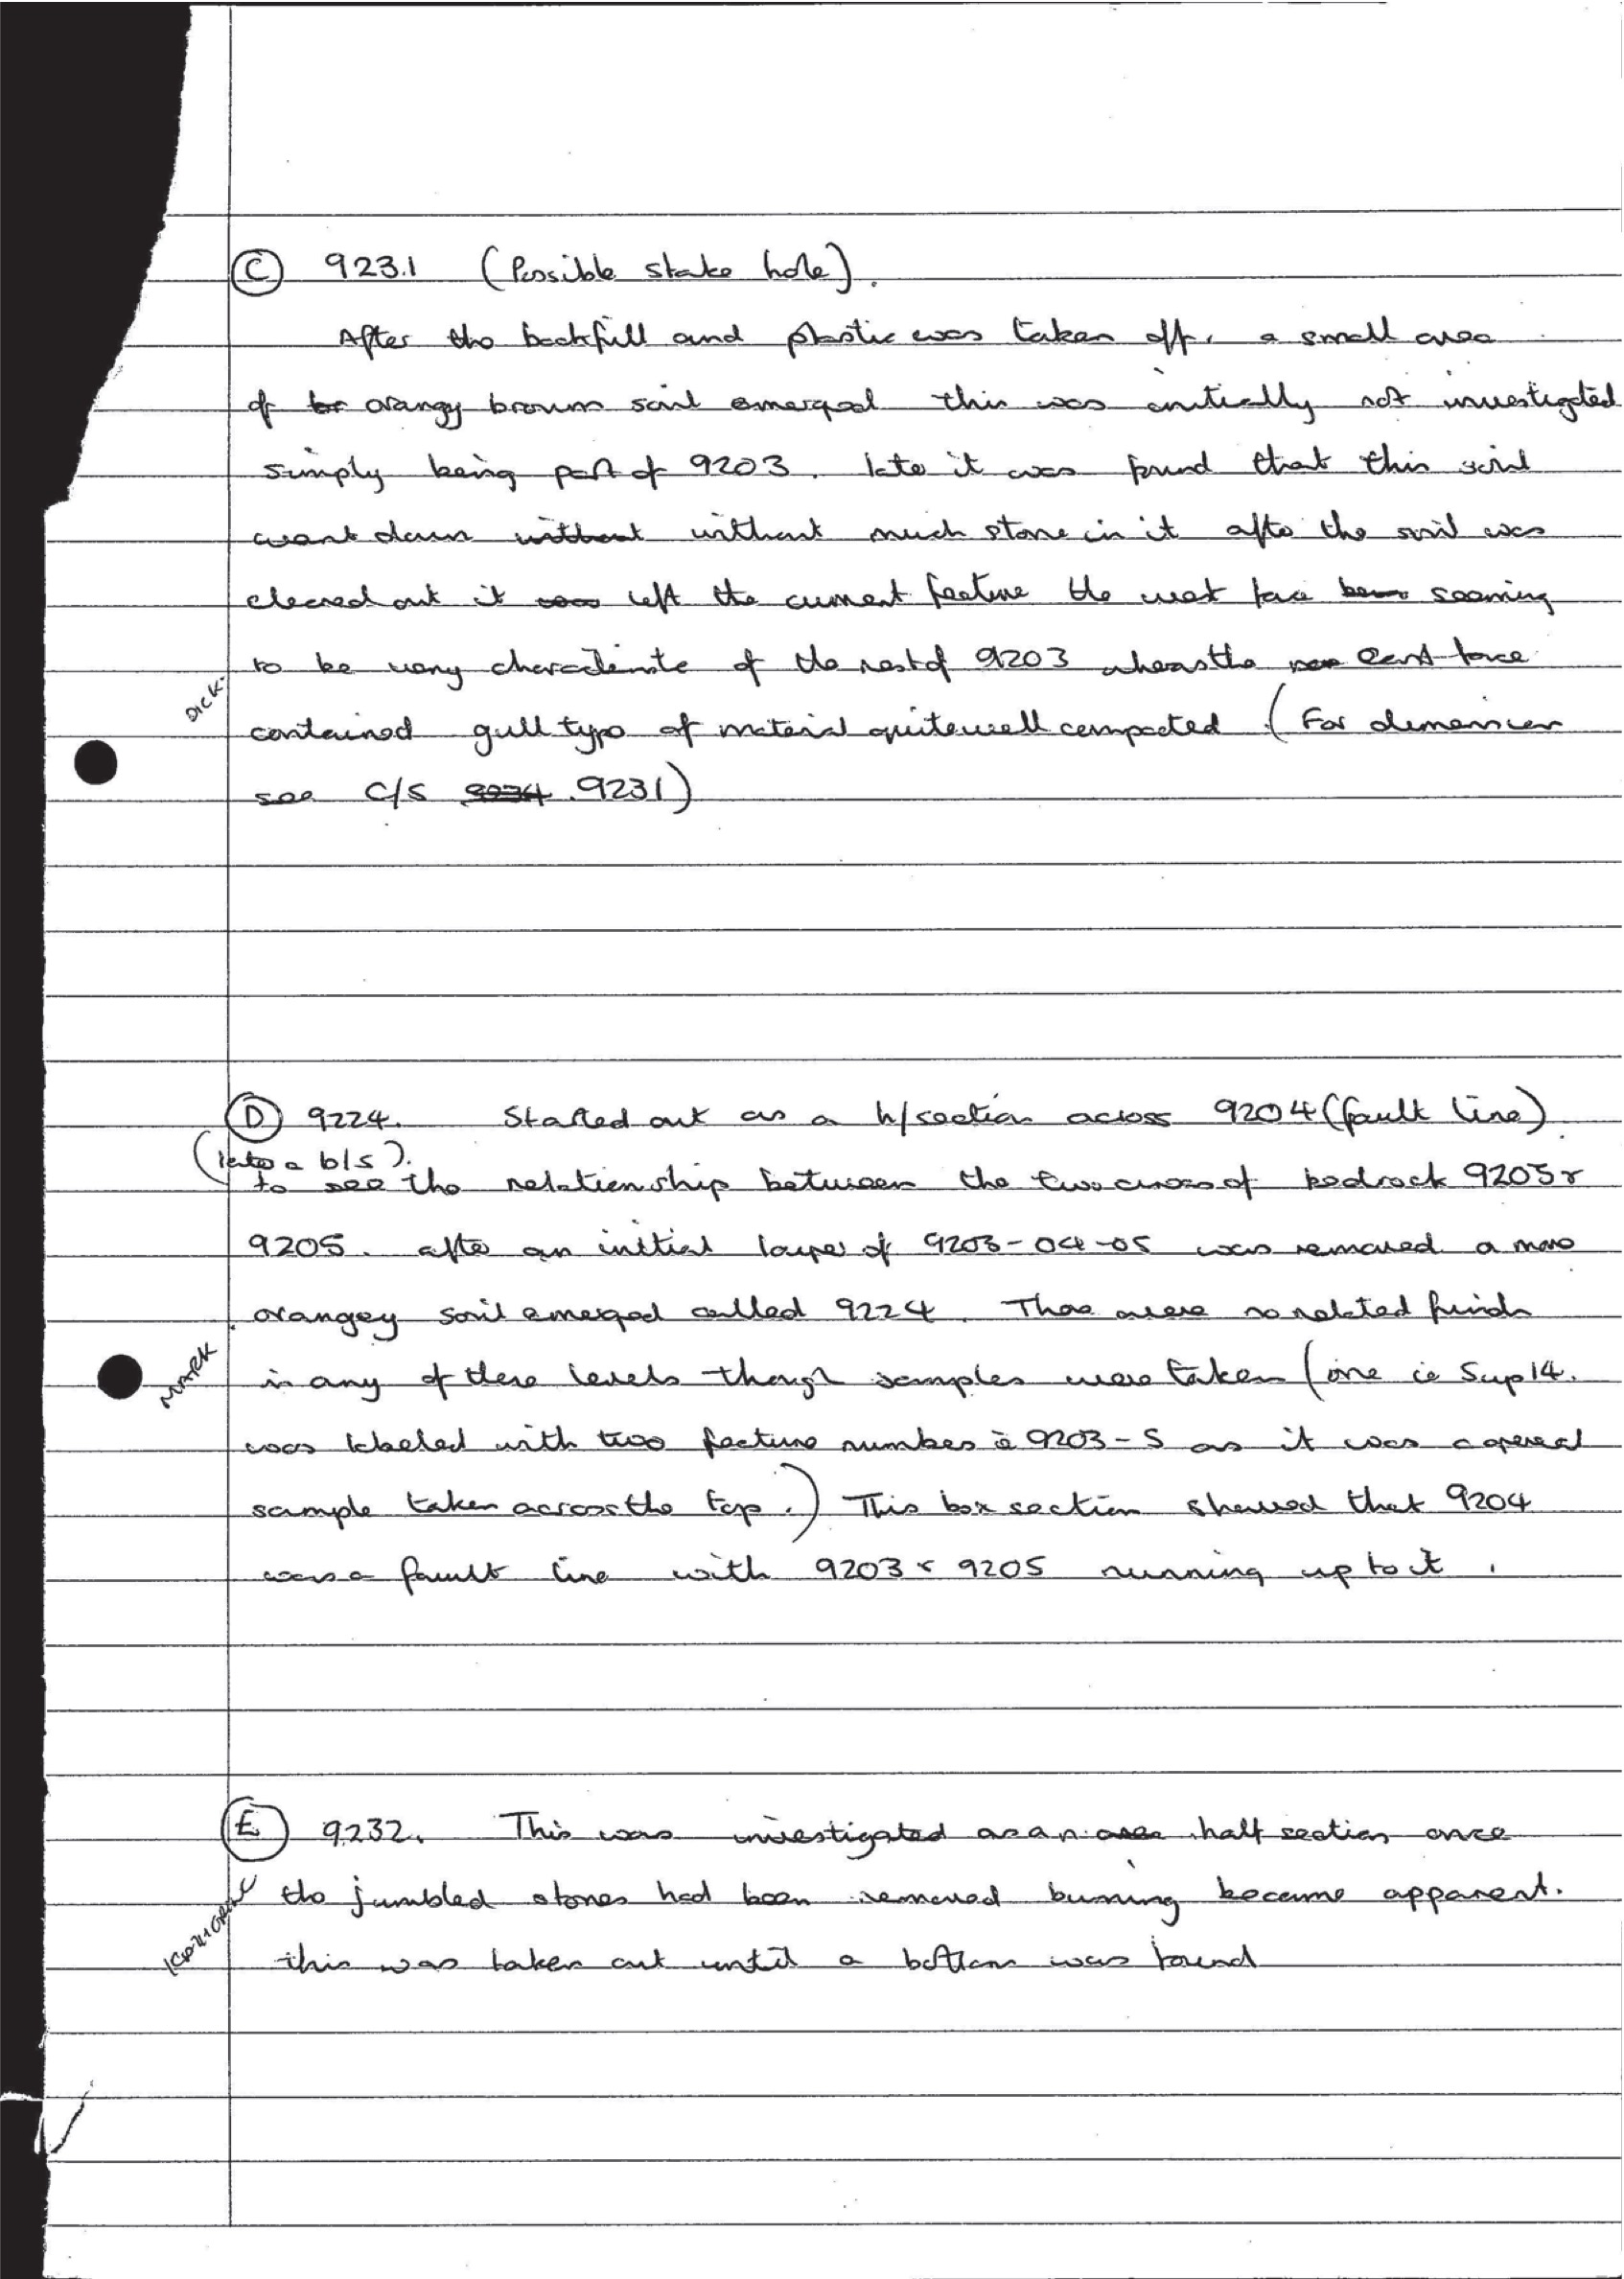 (C) 9231 (Possible stake hole).
After the backfill and plastic was taken off, a small area
of br orangy brown soil emerged this was initially not investigated
simply being part of 9203. late it was found that this soil
went down without without much stone in it after the soil was
cleared out it was left the current feature the west face been seeming
to be very of the rest of 9203 wheras the east face
DICK.
contained gull type of material quite well compacted (For dimension
see C/S 9234 9231)
(D) 9224. Started out as a h/section across 9204 (fault line)
(later a b/s).
to see the relationship between the two areas of bedrock 9203 &
9205. after an initial layer of 9203-04-05 was removed a more
orangey soil emerged called 9224. There were no related finds
MARK
in any of these levels though samples were taken (one ie Sup 14.
was labeled with two feature numbers ie 9203-5 as it was a general
sample taken across the top.) This box section showed that 9204
was a fault line with 9203 & 9205 running up to it.
(E) 9232. This was investigated as an area half section once
the jumbled stones had been removed burning became apparent.
this was taken out until a bottom was found